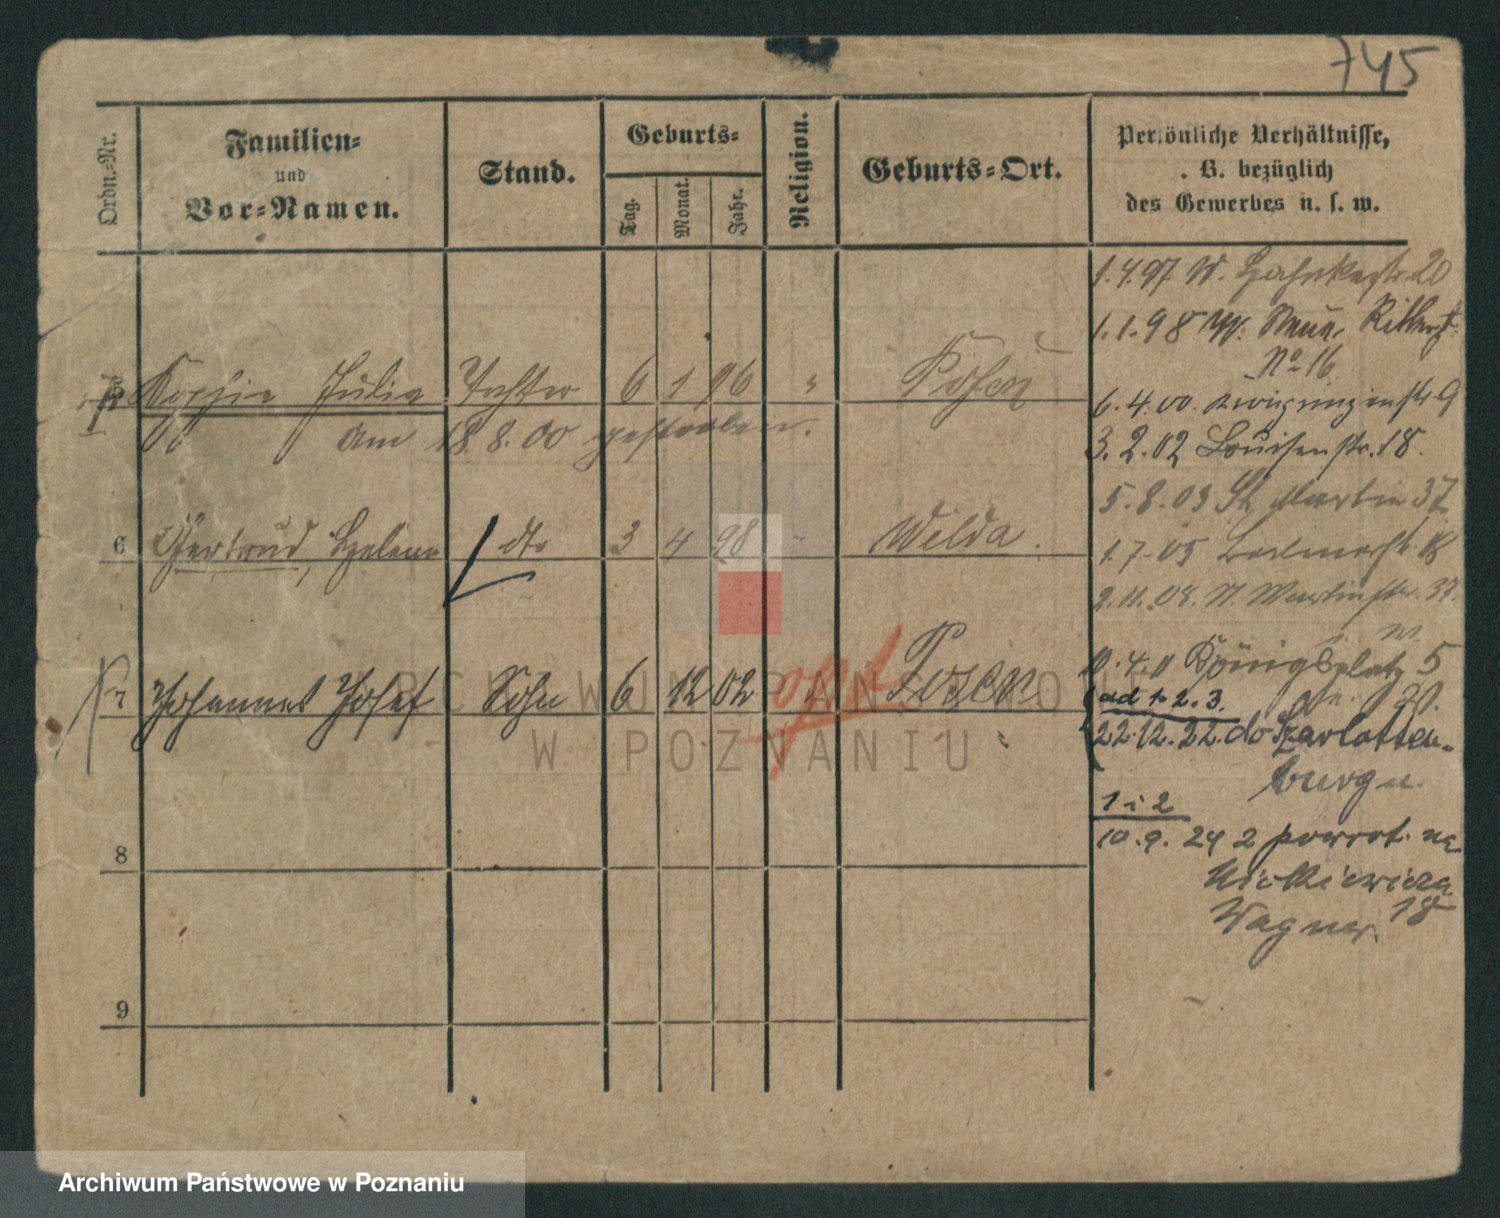 745
Ordn.-Nr.
Familien-
und
Vor-Namen.
Stand.
Geburts-
Tag.
Monat.
Jahr.
Religion.
Geburts-Ort.
Persönliche Verhältnisse,
. B. bezüglich
des Gewerbes u. s. w.
1.4.97 W.
20
1.1.98 W. Neue Ritterst.
No 16
Sophie Julie Tochter 6 1 96 " Posen
6.4.00. 9
am 18.8.00 gestorben.
3.2.02 Louisenstr. 18.
5.8.03 St Martin 37
6 Gertrud, Helene dto 3 4 98 " Wilda.
1.7.05
2.11.08. St. Martinstr. 37.
7 Johannes Josef Sohn 6 12 02 " Posen
opt
10.4.11 Königsplatz 5
ad 1. 2. 3.
22.12.22. do Szarlotten-
burgu.
1 i 2
10.9.24 z powrot. na
Mickiewicza
Wagner. 18
8
9
ARCHIWUM PAŃSTWOWE
W POZNANIU
Archiwum Państwowe w Poznaniu